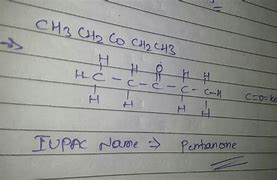 CH3 CH2 CO CH2 CH3
H H O H H
H - C - C - C - C - C - H
H H H H
IUPAC Name → Pentanone